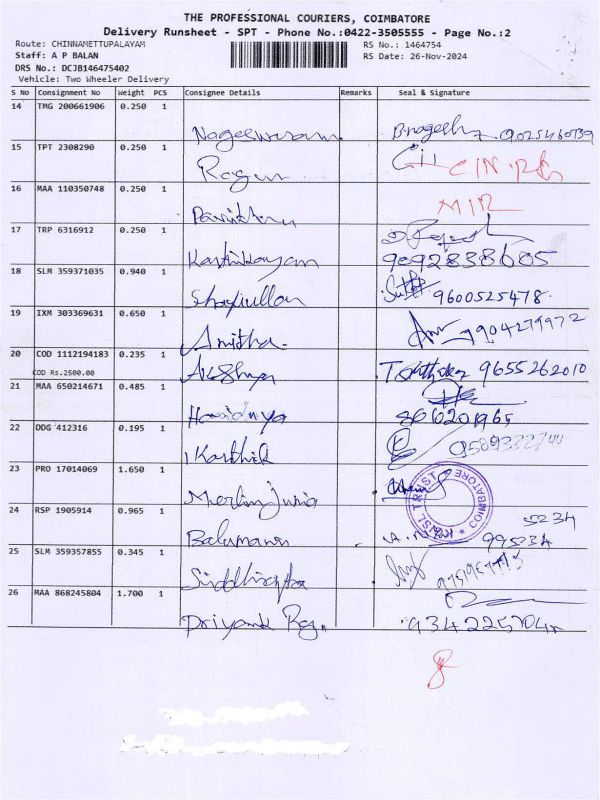 THE PROFESSIONAL COURIERS, COIMBATORE
Delivery Runsheet - SPT - Phone No.:0422-3505555 - Page No.:2
Route: CHINNAMETTUPALAYAM RS No.: 1464754
Staff: A P BALAN RS Date: 26-Nov-2024
DRS No.: DCJB146475402
Vehicle: Two Wheeler Delivery
S No Consignment No Weight PCS Consignee Details Remarks Seal & Signature
14 TMG 200661906 0.250 1
Nageswaran B.nagesh 9025460739
15 TPT 2308290 0.250 1
Ragu
16 MAA 110350748 0.250 1
Pavithra
17 TRP 6316912 0.250 1
Karthikayan 9092838685
18 SLM 359371035 0.940 1
Shafiullah 9600525478
19 IXM 303369631 0.650 1
Anitha 7904279972
20 COD 1112194183 0.235 1
COD Rs.2500.00
Akshya 9655262010
21 MAA 650214671 0.485 1
22 DDG 412316 0.195 1
Karthik
23 PRO 17014069 1.650 1
Merlin
TRUST * COIMBATORE *
24 RSP 1905914 0.965 1
5234
995234
25 SLM 359357855 0.345 1
26 MAA 868245804 1.700 1
Priyank